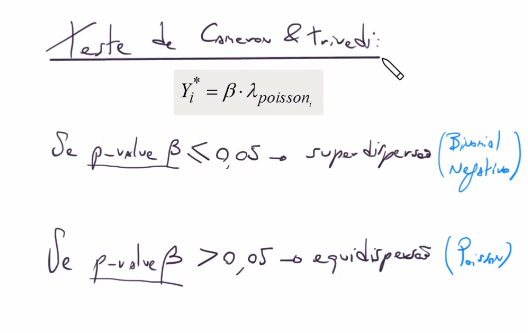 Teste de Cameron & Trivedi:
Yᵢ* = β · λpoissonᵢ
Se p-value β ≤ 0,05 → superdispersão (Binomial Negativo)
Se p-value β > 0,05 → equidispersão (Poisson)